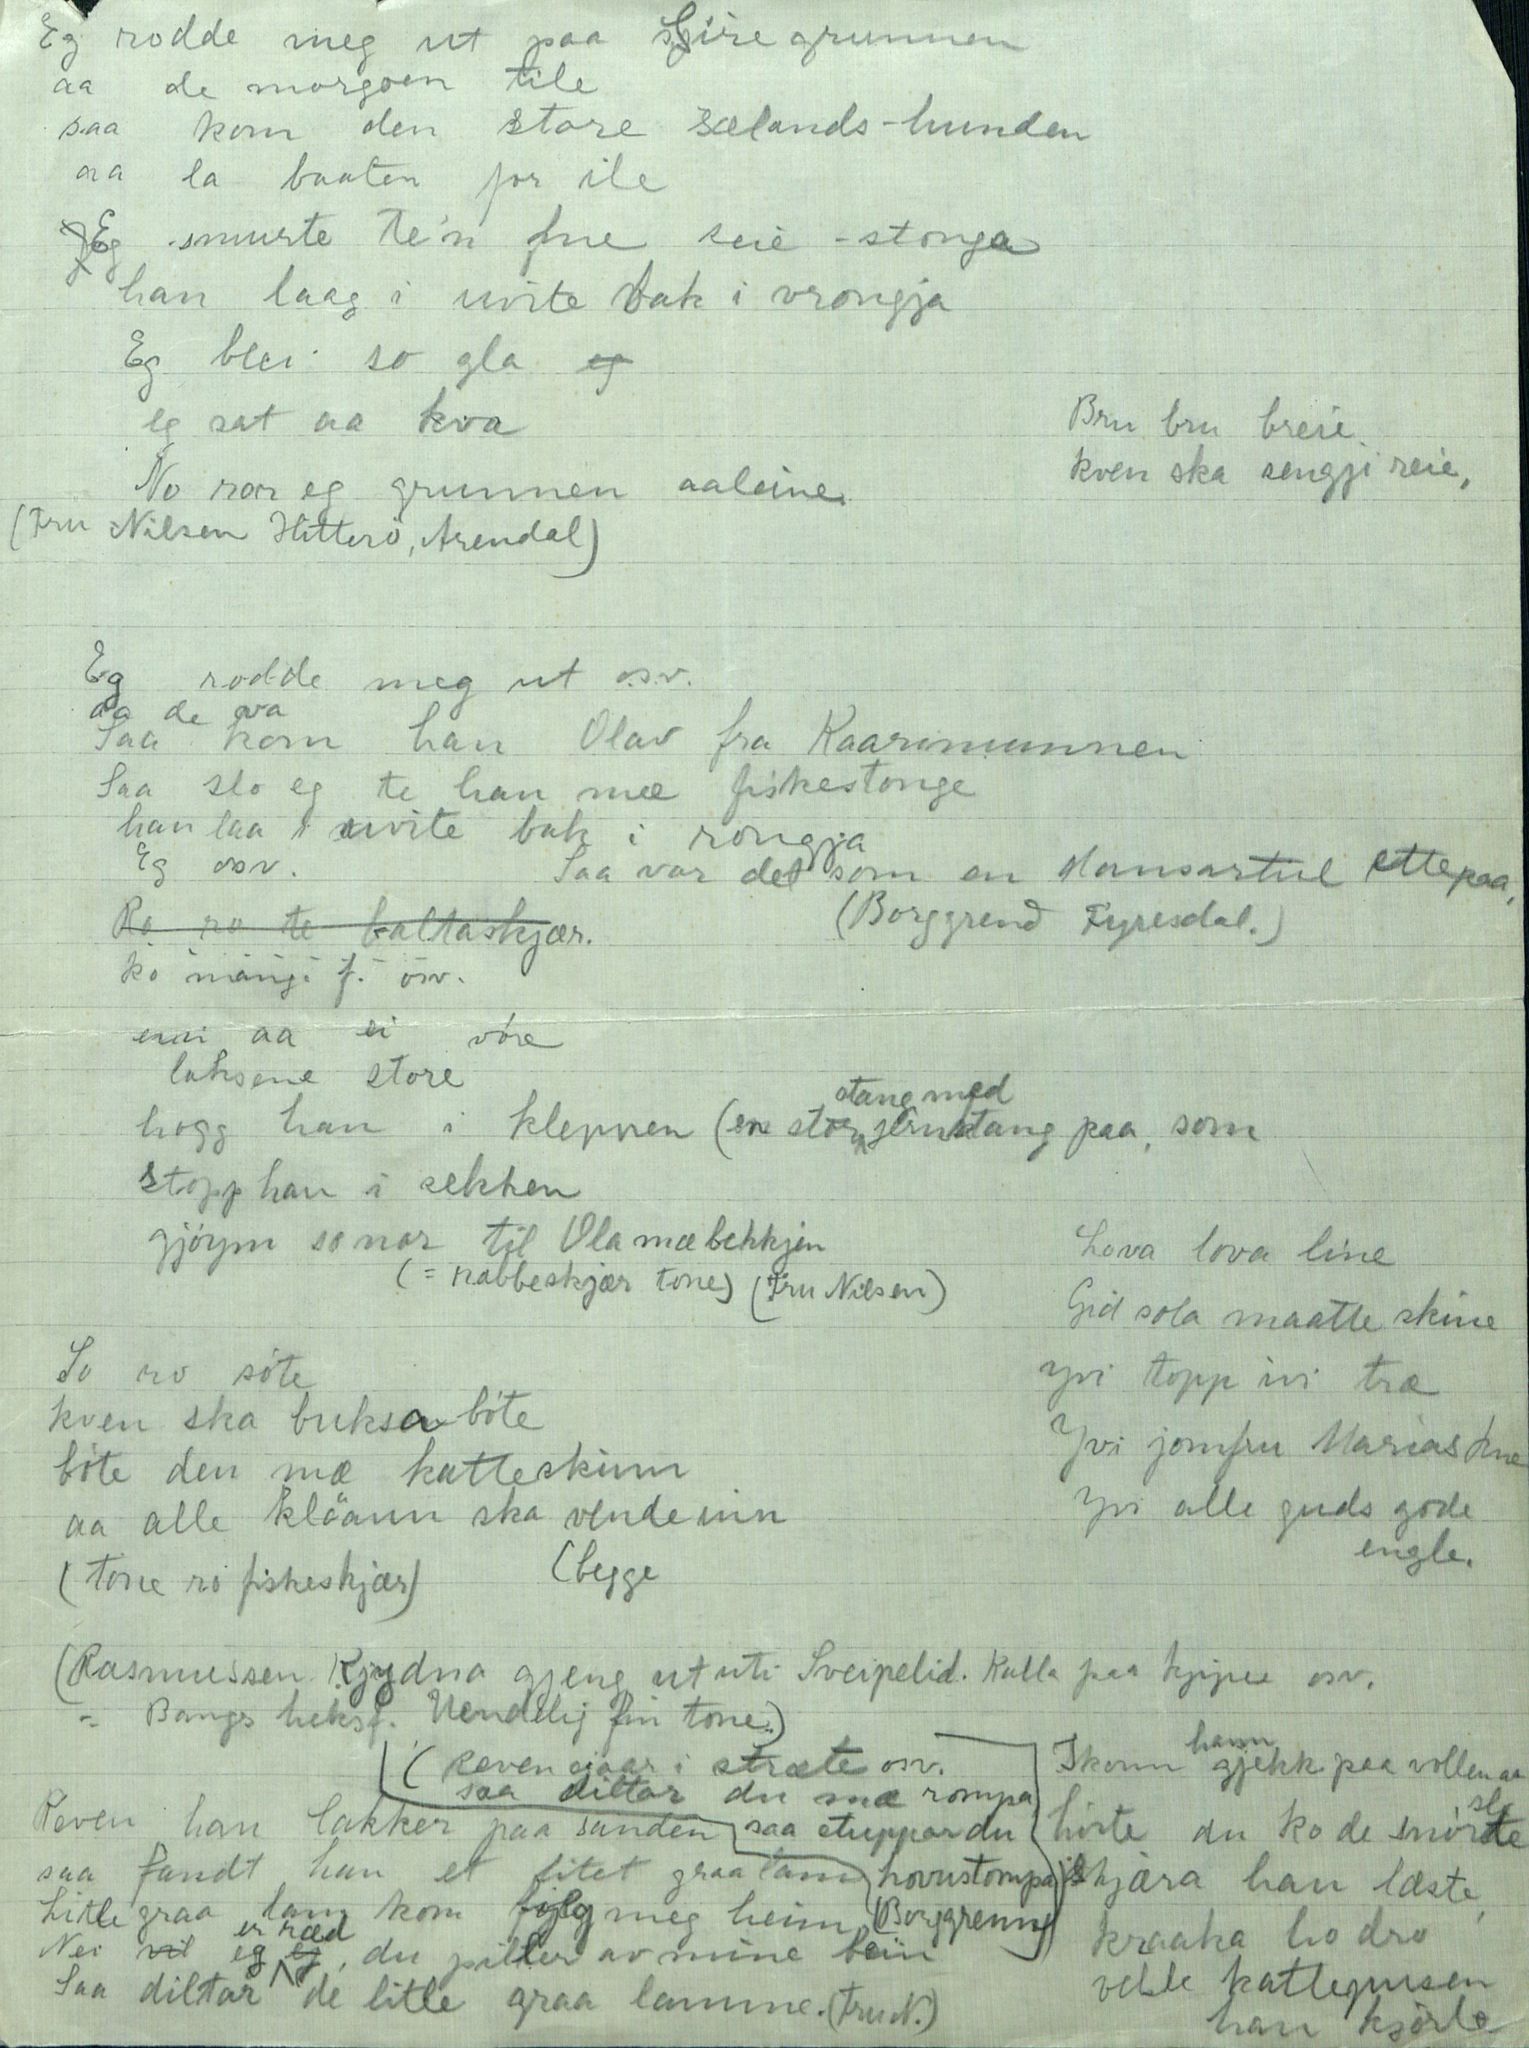 Eg rodde meg ut paa Sjiregrunnen
aa de morgoen tile
saa kom den store sælands-hunden
aa la baaten for ile
Eg smurte te'n fne seie-stonga
han laag i uvite bak i vrongja
Eg blei so gla eg
eg sat aa kva
No ror eg grunnen aaleine.
(Fru Nilsen Hitterö, Arendal)
Bru bru breie.
kven ska sengji reie,
Eg rodde meg ut osv.
aa de va
Saa kom han Olav fra Kaaremunnen
Saa slo eg te han mæ fiskestonge
han laa i uvite bak i rongja
Eg osv. Saa var det som en slonsartul ettepaa,
(Borggrend Fyresdal.)
Ro ro te baltaskjær.
ko mangi f. osv.
ein aa ei vöre
laksene store
hogg han i kleppen (en stor stang med jernstang paa, som
stopp han i sekken
gjöym so nor til Ola mæ bekkjen
(= nabbeskjær tone) (Fru Nilsen)
So ro söte
kven ska buksa böte
böte den mæ katteskinn
aa alle klöann ska vende inn
(tone ro fiskeskjær) (begge
Lova lova line
Gid sola maatte skine
Yvi topp ivi træ
Yvi jomfru Marias kne
Yvi alle guds gode
engle.
(Rasmussen Kjydna gjeng ut uti Sveipelid. Kalla paa kjipee osv.
= Bangs heksf. Uendelig fin tone.)
(Reven gaar i stræte osv.
saa diltar du mæ rompa
saa stuppar du
hovustompa
(Borggrenn)
Reven han lakker paa sanden
saa fandt han et litet graa lam
Litle graa lam kom fylg meg heim
Nei vil eg er ræd eg, du piller av mine bein
Saa diltar de litle graa lamme. (Fru N.)
Ikonn hann gjekk paa vollen aa slo
hörte du ko de snörte
skjæra han læste,
kraaka ho dro
velle kattepusen
han kjörte